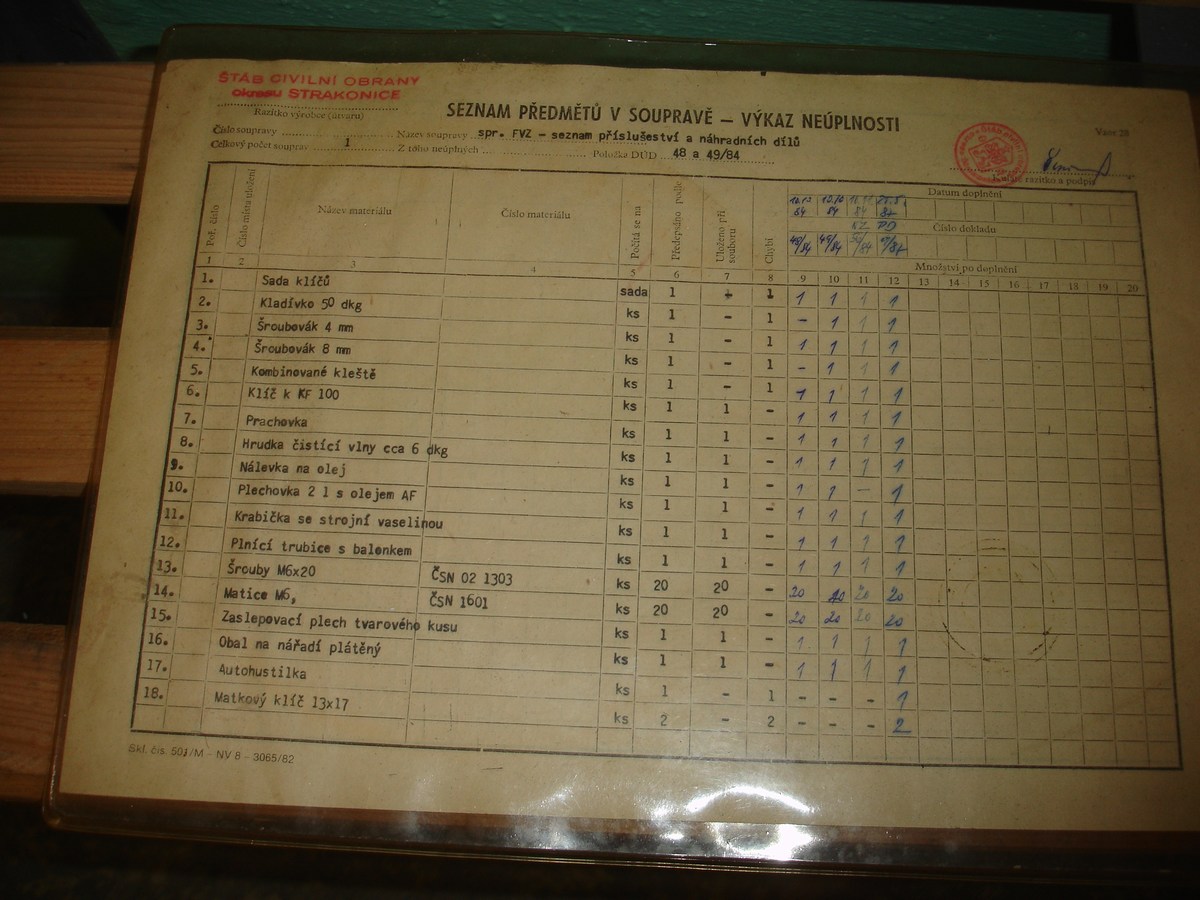 ŠTÁB CIVILNÍ OBRANY
okresu STRAKONICE
Razítko výrobce (útvaru)
SEZNAM PŘEDMĚTŮ V SOUPRAVĚ – VÝKAZ NEÚPLNOSTI
Vzor 28
Číslo soupravy Název soupravy spr. FVZ – seznam příslušeství a náhradních dílů
Celkový počet souprav 1 Z toho neúplných Položka DÚD 48 a 49/84
Kulaté razítko a podpis
Poř. číslo
Číslo místa uložení
Název materiálu
Číslo materiálu
Počítá se na
Předepsáno podle
Uloženo při souboru
Chybí
Datum doplnění
84 84 84 87
Číslo dokladu
49/84
Množství po doplnění
1 2 3 4 5 6 7 8 9 10 11 12 13 14 15 16 17 18 19 20
1. Sada klíčů sada 1 1 1 1 1 1
2. Kladívko 50 dkg ks 1 - 1 - 1 1 1
3. Šroubovák 4 mm ks 1 - 1 1 1 1 1
4. Šroubovák 8 mm ks 1 - 1 - 1 1 1
5. Kombinované kleště ks 1 - 1 1 1 1 1
6. Klíč k KF 100 ks 1 1 - 1 1 1 1
7. Prachovka ks 1 1 - 1 1 1 1
8. Hrudka čistící vlny cca 6 dkg ks 1 1 - 1 1 1 1
9. Nálevka na olej ks 1 1 - 1 1 - 1
10. Plechovka 2 l s olejem AF ks 1 1 - 1 1 1 1
11. Krabička se strojní vaselinou ks 1 1 - 1 1 1 1
12. Plnící trubice s balonkem ks 1 1 - 1 1 1 1
13. Šrouby M6x20 ČSN 02 1303 ks 20 20 - 20 20 20 20
14. Matice M6, ČSN 1601 ks 20 20 - 20 20 20 20
15. Zaslepovací plech tvarového kusu ks 1 1 - 1 1 1 1
16. Obal na nářadí plátěný ks 1 1 - 1 1 1 1
17. Autohustilka ks 1 - 1 - - - 1
18. Matkový klíč 13x17 ks 2 - 2 - - - 2
Skl. čís. 501/M – NV 8 – 3065/82